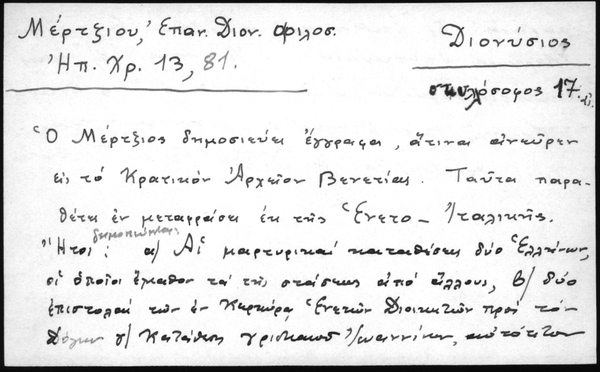 Μέρτζιου, Ἐπαν. Διον. Φιλοσ.
Ἠπ. Χρ. 13, 81.
Διονύσιος
σκυλόσοφος 17.
Ὁ Μέρτζιος δημοσιεύει ἔγγραφα, ἅτινα ἀνεῦρεν
εἰς τό Κρατικόν Ἀρχεῖον Βενετίας. Ταῦτα παρα-
θέτει ἐν μεταφράσει ἐκ τῆς Ἑνετο-Ἰταλικῆς.
δημοσιεύει
Ἤτοι: α) Αἱ μαρτυρικαί καταθέσεις δύο Ἑλλήνων,
οἱ ὁποῖοι ἔμαθον τά τῆς στάσεως ἀπό ἄλλους, β) δύο
ἐπιστολαί τῶν ἐν Κερκύρᾳ Ἑνετῶν Διοικητῶν πρός τόν
Δόγην γ) Κατάθεσις Ἰωαννίνων, αὐτόπτου